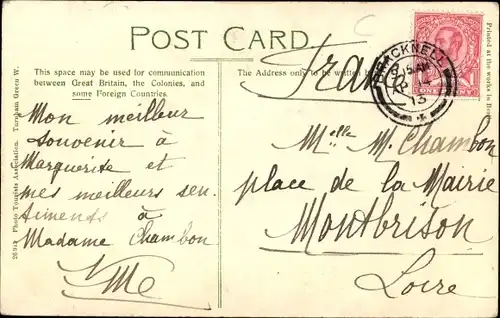 POST CARD.
This space may be used for communication
between Great Britain, the Colonies, and
some Foreign Countries.
The Address only to be written
France
BRACKNELL
13
ONE PENNY
Printed at the works in
26912 Photo Tourists Association. Turnham Green W.
Mon meilleur
souvenir à
Marguerite et
mes meilleurs sen-
timents à
Madame Chambon
Melle M. Chambon
place de la Mairie
Montbrison
Loire